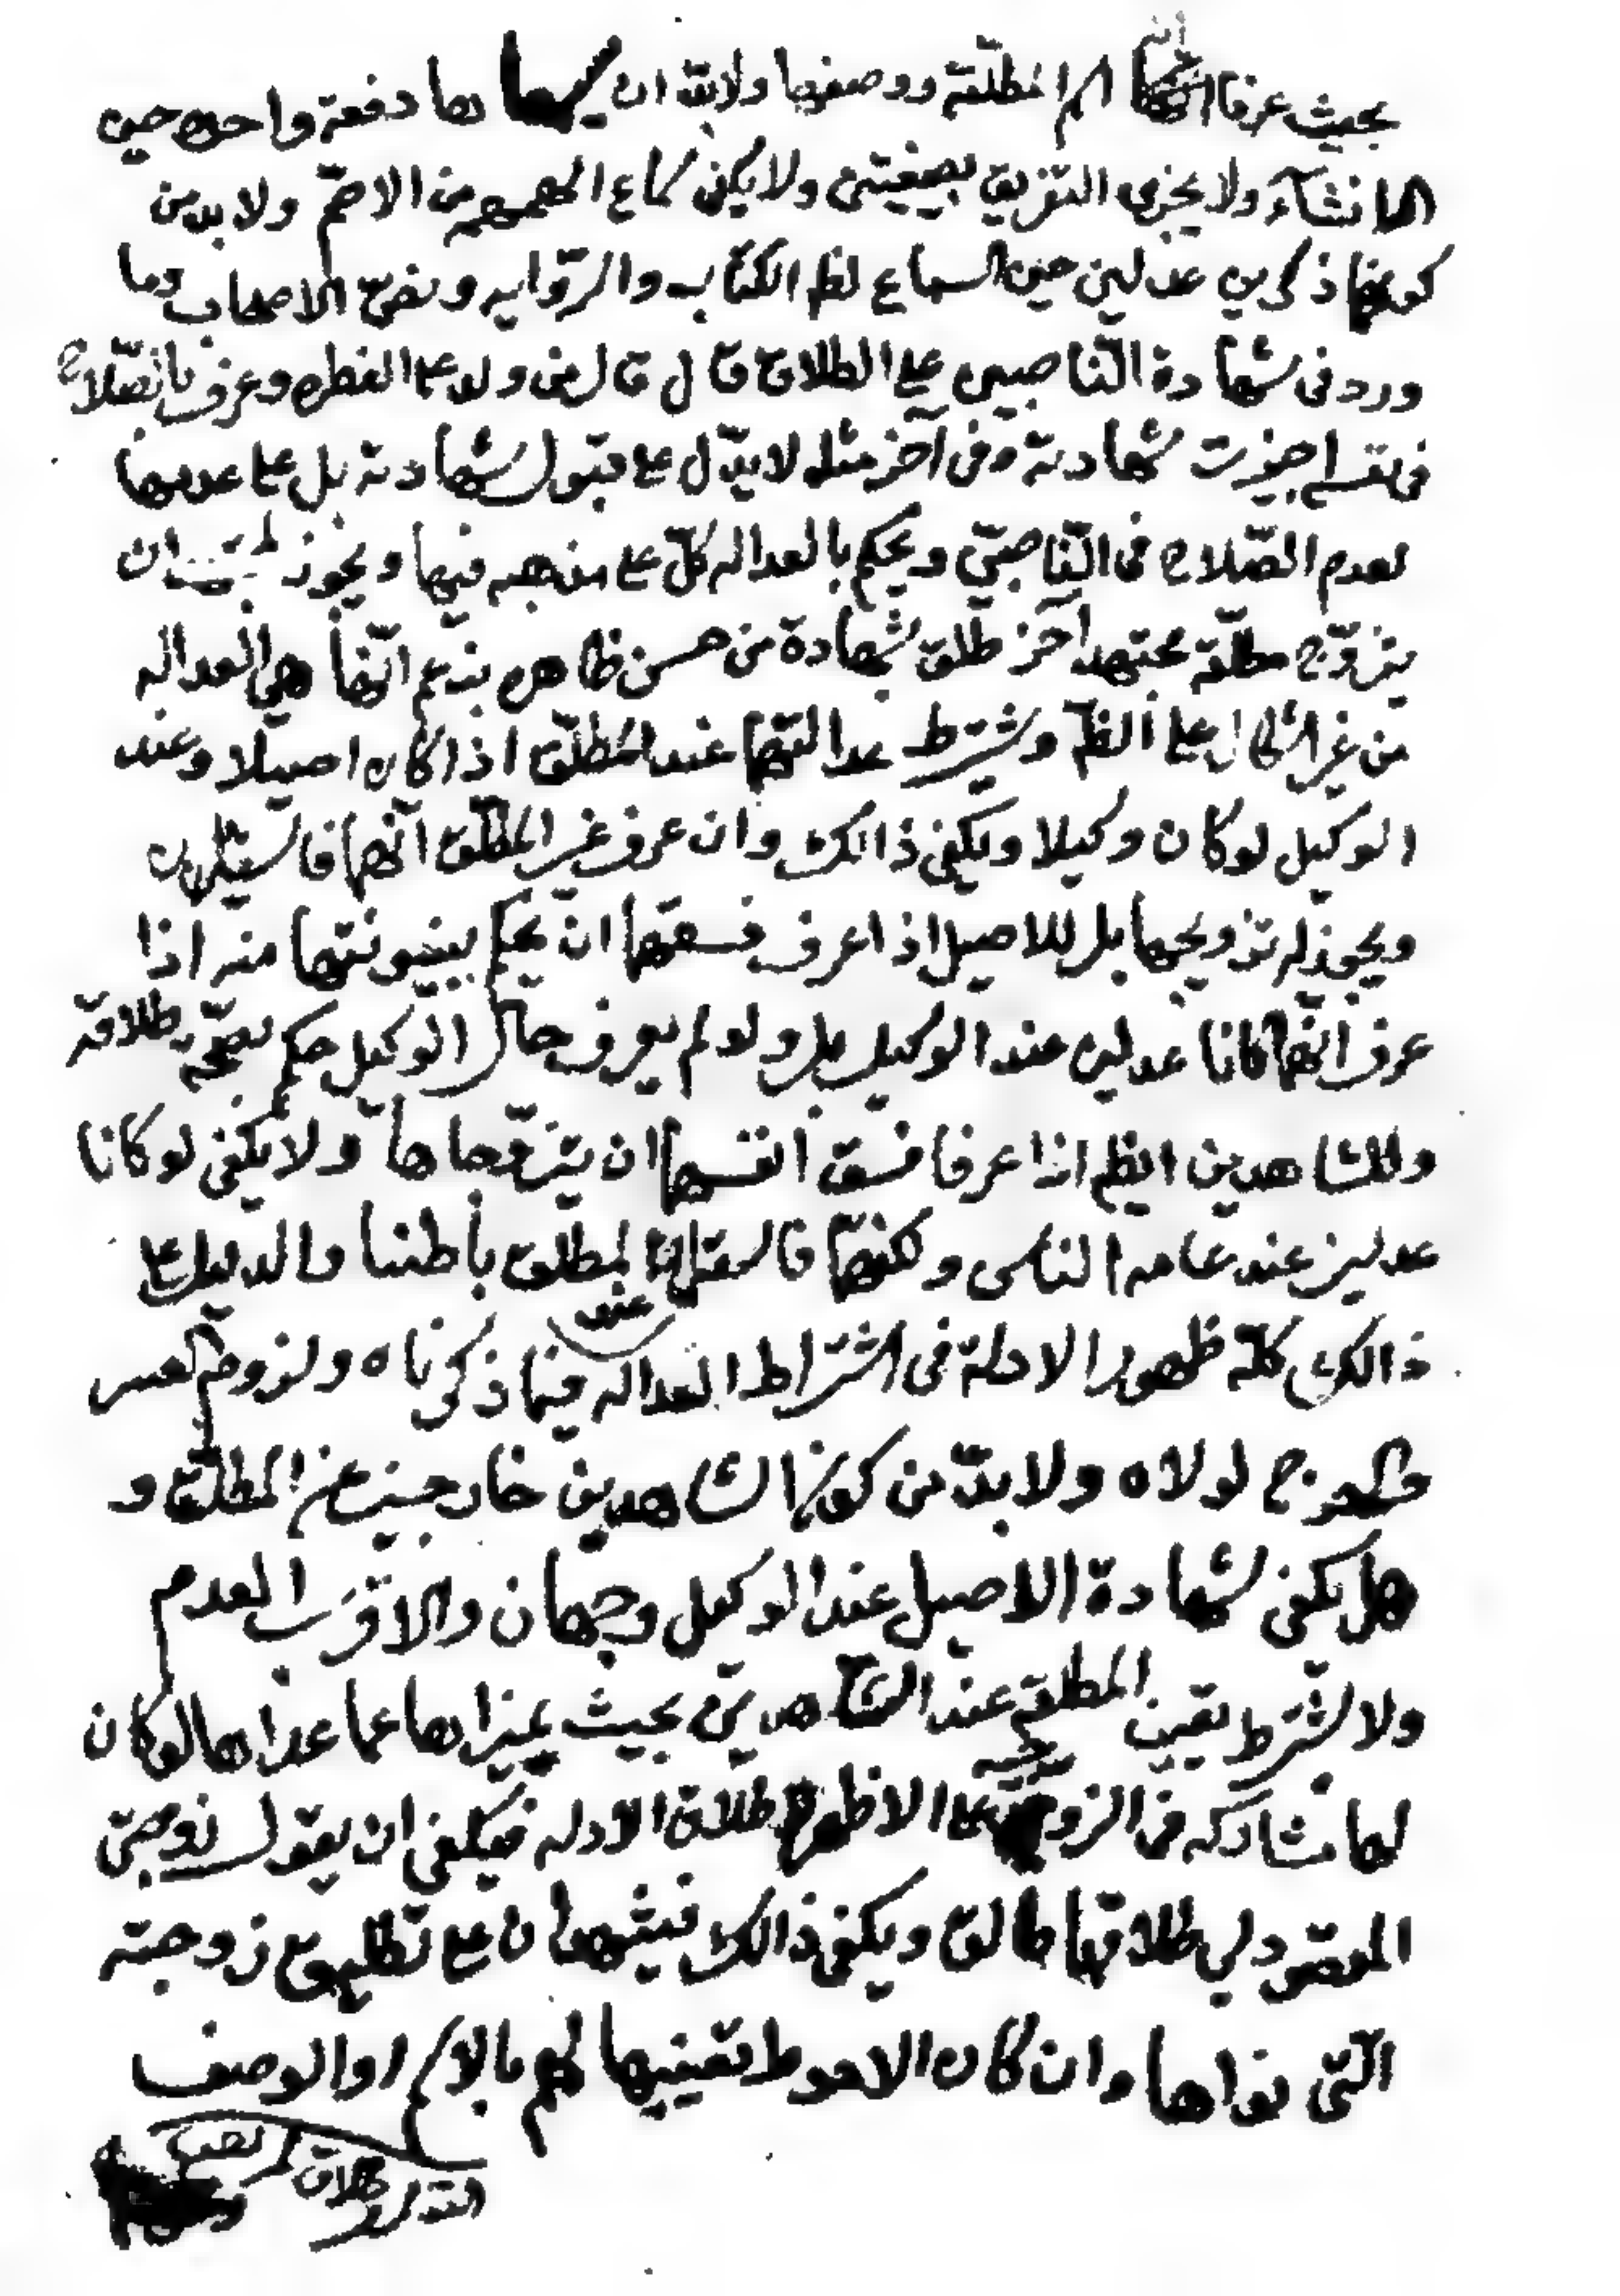 بحيث عرفا اسم المطلقة ووصفها ولابد ان يسمعاها دفعة واحدة حين
الانشاء ولا يجزي التفريق بصيغتين ولا يكفي سماع الصمم من الاصم ولا بد من
كونهما ذكرين عدلين حين السماع لظ الكتاب والرواية ونص الاصحاب وما
ورد في شهادة الناصبين على الطلاق قال قال من ولد على الفطرة وعرف بالصلاح
في نفسه اجيزت شهادته وفي آخر مثله لا يدل على قبول شهادته بل على عدمها
لعدم الصلاح في الناصبي ويحكم بالعدالة كل على مذهبه فيها ويجوز لمجتهد ان
يتزوج مطلقة مجتهد آخر طلق بشهادة من حسن ظاهره بزعم انها هي العدالة
من غير اشكال على الظ ويشترط عدالتهما عند المطلق اذا كان اصيلا وعند
الوكيل لو كان وكيلا ويكفي ذالك وان عرف غير المطلق انهما فاسقان
ويجوز له تزويجها بل للاصيل اذا عرف فسقهما ان يحكم ببينونتها منه اذا
عرف انهما كانا عدلين عند الوكيل بل ولو لم يعرف حال الوكيل حكم بصحة طلاقه
وللشاهدين ايظم اذا عرفا فسق انفسهما ان يتزوجاها ولا يكفي لو كانا
عدلين عند عامة الناس ولكنهما فاسقان عند المطلق باطنا والدليل على
ذالك كله ظهور الادلة في اشتراط العدالة فيما ذكرناه ولزوم العسر
والحرج لولاه ولا بد من كون الشاهدين خارجين عن المطلق و
هل يكفي شهادة الاصيل عند الوكيل وجهان والاقرب العدم
ولا يشترط تعيين المطلقة عند الشاهدين بحيث يميزاها عما عداها لو كان
لها مشاركه في الزوجيه على الاظهر لاطلاق الادله فيكفي ان يقول زوجتي
المقصود لي طلاقها طالق ويكفي ذالك فيشهدان على تطليق زوجته
التي نواها وان كان الاحوط تعيينها لهم بالاسم او الوصف